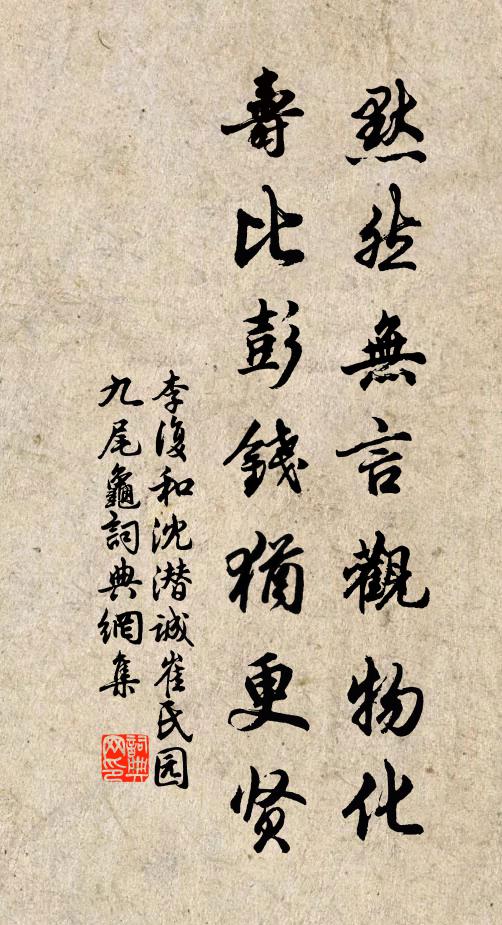 默然無言觀物化
壽比彭錢猶更贤
李復和沈潜诚崔民园
九尾龜詞典網集
詞典
网印